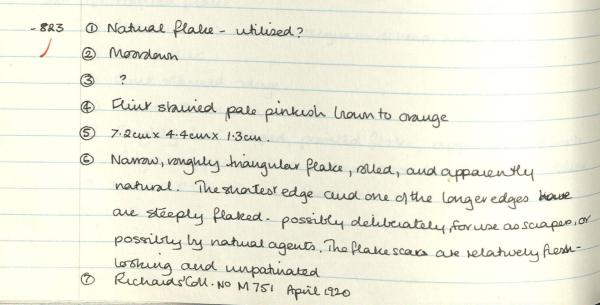 - 823 ① Natural flake - utilised?
② Moordown
③ ?
④ Flint stained pale pinkish brown to orange
⑤ 7.2cm x 4.4cm x 1.3cm.
⑥ Narrow, roughly triangular flake, rolled, and apparently
natural. The shortest edge and one of the longer edges have
are steeply flaked - possibly deliberately, for use as scraper, or
possibly by natural agents. The flake scars are relatively fresh-
looking and unpatinated
⑦ Richards' Coll. No M 751 April 1920